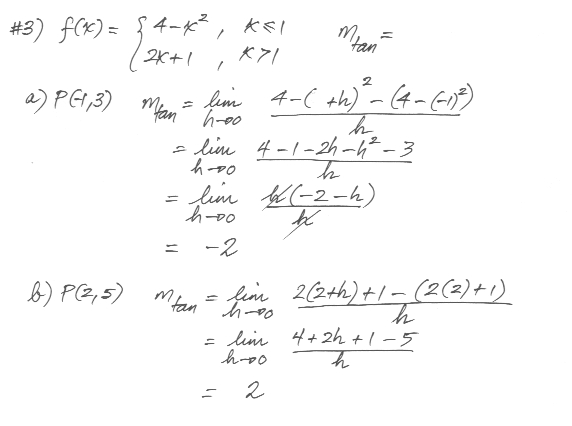 #3) f(x) = { 4-x², x≤1
2x+1, x>1 m_tan =
a) P(-1,3) m_tan = lim h→0 (4-( +h)² - (4-(-1)²))/h
= lim h→0 (4-1-2h-h²-3)/h
= lim h→0 h(-2-h)/h
= -2
b) P(2,5) m_tan = lim h→0 (2(2+h)+1-(2(2)+1))/h
= lim h→0 (4+2h+1-5)/h
= 2